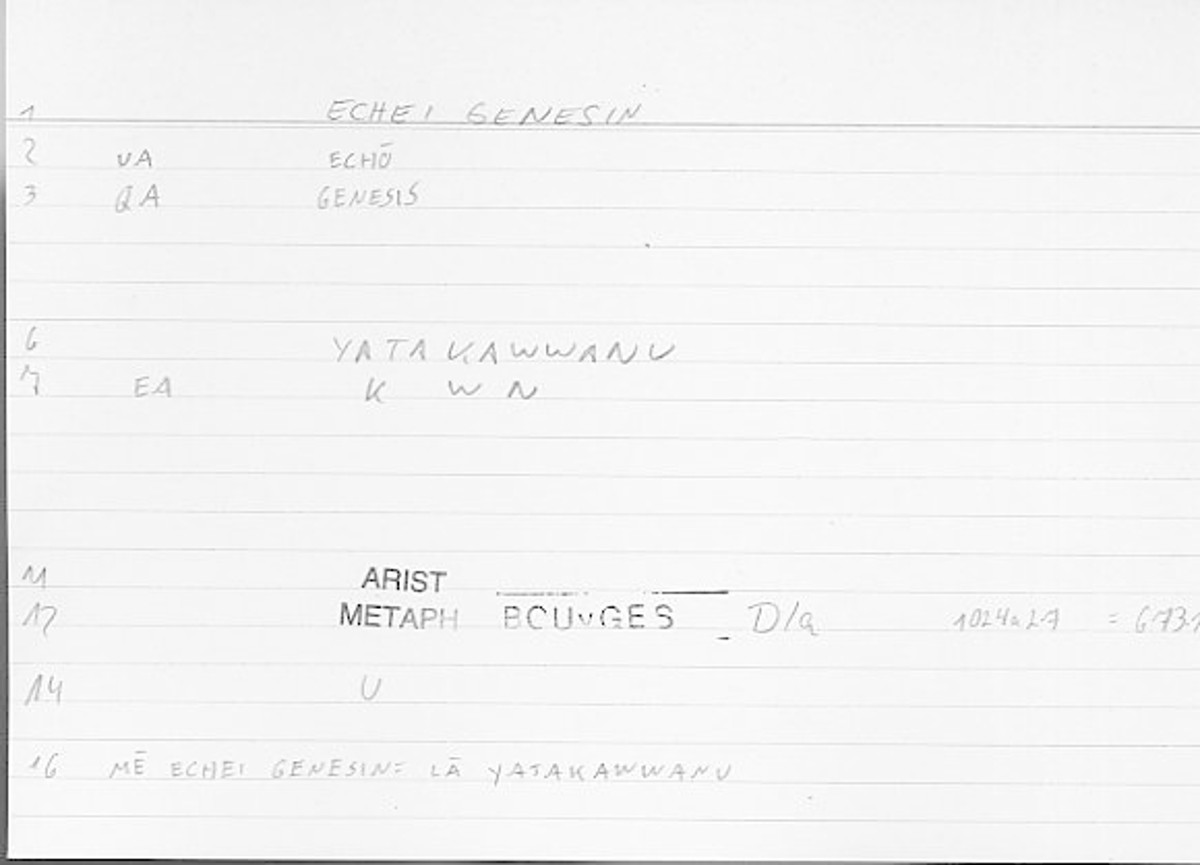 1 ECHEI GENESIN
2 VA ECHŌ
3 QA GENESIS
6 YATAKAWWANU
7 EA K W N
11 ARIST
12 METAPH BOUYGES D/a 1024a27 = 673.1
14 U
16 MĒ ECHEI GENESIN= LĀ YATAKAWWANU